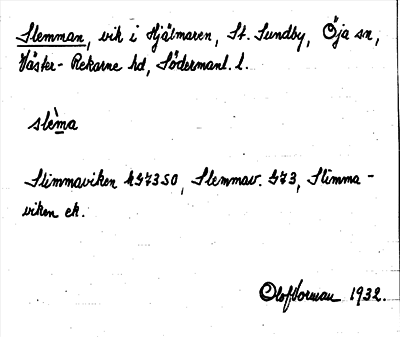 Slemman, vik i Hjälmaren, St. Sundby, Öja sn,
Väster-Rekarne hd, Södermanl. l.
slèma
Slimmaviken kG73SO, Slemmav. G73, Slimma-
viken ek.
Olof Vorman 1932.